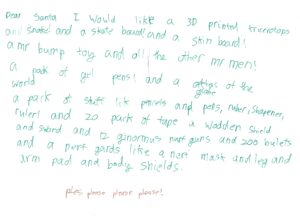 Dear Santa I would like a 3D printed triceratops
and snake! and a skate board! and a skin board!
a mr bump toy and all the other mr men!
a pak of gel pens! and a atlas of the
world
a park of stuff like pencils and pens, ruber, sharpener,
ruler! and 20 park of tape a wodden shield
and sword and 12 ginormus nerf guns and 200 bulets
and a nerf gards like a nerf mask and leg and
arm pad and body shields.
please please please!